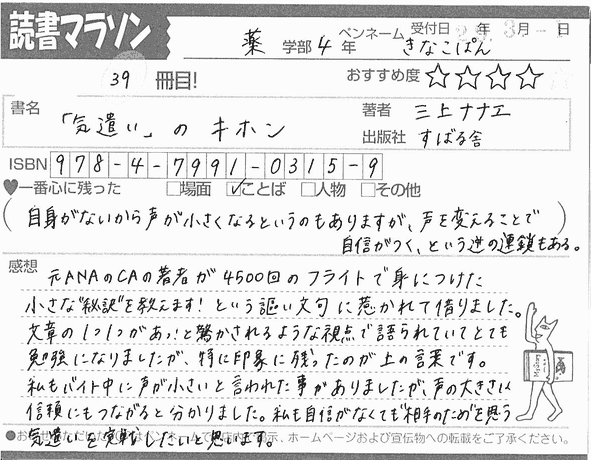 読書マラソン
薬 学部 4 年 ペンネーム きなこぱん 受付日 年 3月 日
39 冊目! おすすめ度 ☆☆☆☆
書名 「気遣い」の キホン
著者 三上ナナエ
出版社 すばる舎
ISBN 978-4-7991-0315-9
♥一番心に残った □場面 ☑ことば □人物 □その他
(自身がないから声が小さくなるというのもありますが、声を変えることで
自信がつく、という逆の連鎖もある。)
感想
元ANAのCAの著者が4500回のフライトで身につけた
小さな"秘訣"を教えます!という謳い文句に惹かれて借りました。
文章の1つ1つがあっ!と驚かされるような視点で語られていてとても
勉強になりましたが、特に印象に残ったのが上の言葉です。
私もバイト中に声が小さいと言われた事がありましたが、声の大きさは
信頼にもつながると分かりました。私も自信がなくても"相手のため"を思う
気遣いを実戦したいと思います。
ペンネームで店内 示、ホームページおよび宣伝物への転載をご了承ください。